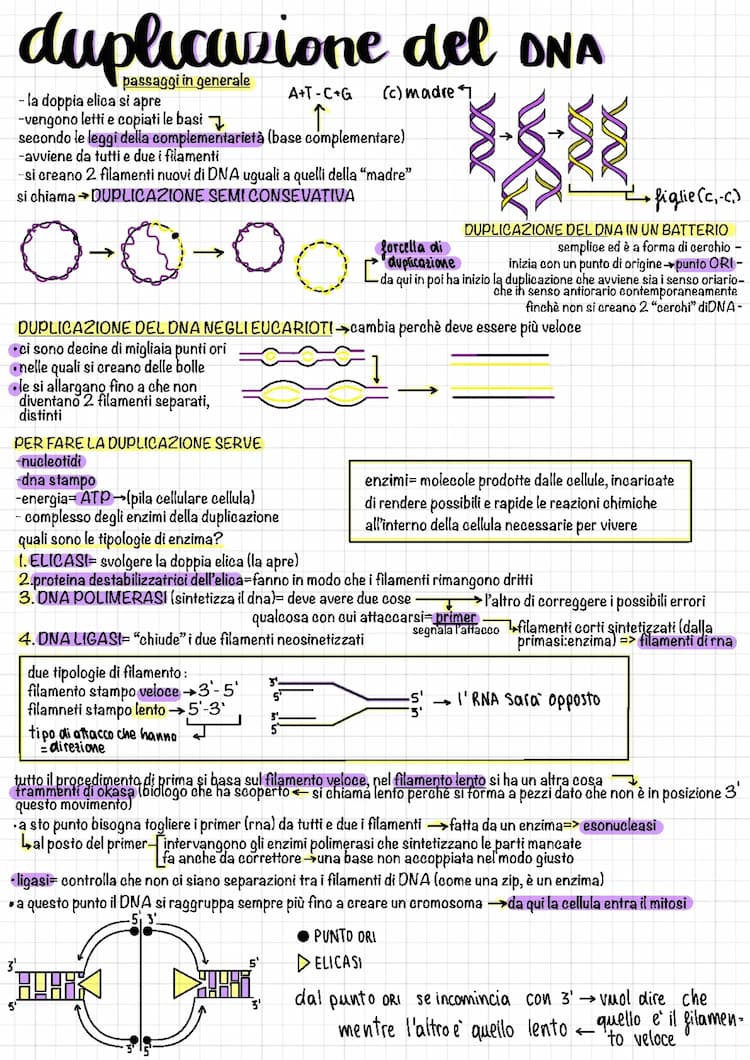 duplicazione del DNA
passaggi in generale
- la doppia elica si apre
-vengono letti e copiati le basi
A+T - C+G
secondo le leggi della complementarietà (base complementare)
-avviene da tutti e due i filamenti
-si creano 2 filamenti nuovi di DNA uguali a quelli della "madre"
si chiama → DUPLICAZIONE SEMI CONSEVATIVA
(c) madre
figlie (c,-c,)
DUPLICAZIONE DEL DNA IN UN BATTERIO
semplice ed è a forma di cerchio -
inizia con un punto di origine → punto ORI -
forcella di
duplicazione
da qui in poi ha inizio la duplicazione che avviene sia i senso oriario-
che in senso antiorario contemporaneamente
finchè non si creano 2 "cerchi" diDNA -
DUPLICAZIONE DEL DNA NEGLI EUCARIOTI → cambia perchè deve essere più veloce
•ci sono decine di migliaia punti ori
•nelle quali si creano delle bolle
•le si allargano fino a che non
diventano 2 filamenti separati,
distinti
PER FARE LA DUPLICAZIONE SERVE
-nucleotidi
-dna stampo
-energia= ATP → (pila cellulare cellula)
- complesso degli enzimi della duplicazione
quali sono le tipologie di enzima?
enzimi= molecole prodotte dalle cellule, incaricate
di rendere possibili e rapide le reazioni chimiche
all'interno della cellula necessarie per vivere
1. ELICASI= svolgere la doppia elica (la apre)
2.proteina destabilizzatrici dell'elica=fanno in modo che i filamenti rimangono dritti
3. DNA POLIMERASI (sintetizza il dna)= deve avere due cose → l'altro di correggere i possibili errori
qualcosa con cui attaccarsi= primer
segnala l'attacco
filamenti corti sintetizzati (dalla
primasi:enzima) => filamenti di rna
4. DNA LIGASI= "chiude" i due filamenti neosinetizzati
due tipologie di filamento:
filamento stampo veloce → 3'- 5'
filamneti stampo lento → 5'-3'
tipo di attacco che hanno
= direzione
3'
5'
3'
5'
5'
3'
→ l'RNA sarà opposto
tutto il procedimento di prima si basa sul filamento veloce, nel filamento lento si ha un altra cosa
frammenti di okasa (biologo che ha scoperto ← si chiama lento perchè si forma a pezzi dato che non è in posizione 3'
questo movimento)
•a sto punto bisogna togliere i primer (rna) da tutti e due i filamenti → fatta da un enzima=> esonucleasi
al posto del primer intervangono gli enzimi polimerasi che sintetizzano le parti mancate
fa anche da correttore → una base non accoppiata nel modo giusto
•ligasi= controlla che non ci siano separazioni tra i filamenti di DNA (come una zip, è un enzima)
•a questo punto il DNA si raggruppa sempre più fino a creare un cromosoma → da qui la cellula entra il mitosi
5' 3'
3'
5'
5'
3'
3' 5'
PUNTO ORI
ELICASI
dal punto ORI se incomincia con 3' → vuol dire che
quello è il filamen-
to veloce
mentre l'altro è quello lento ←